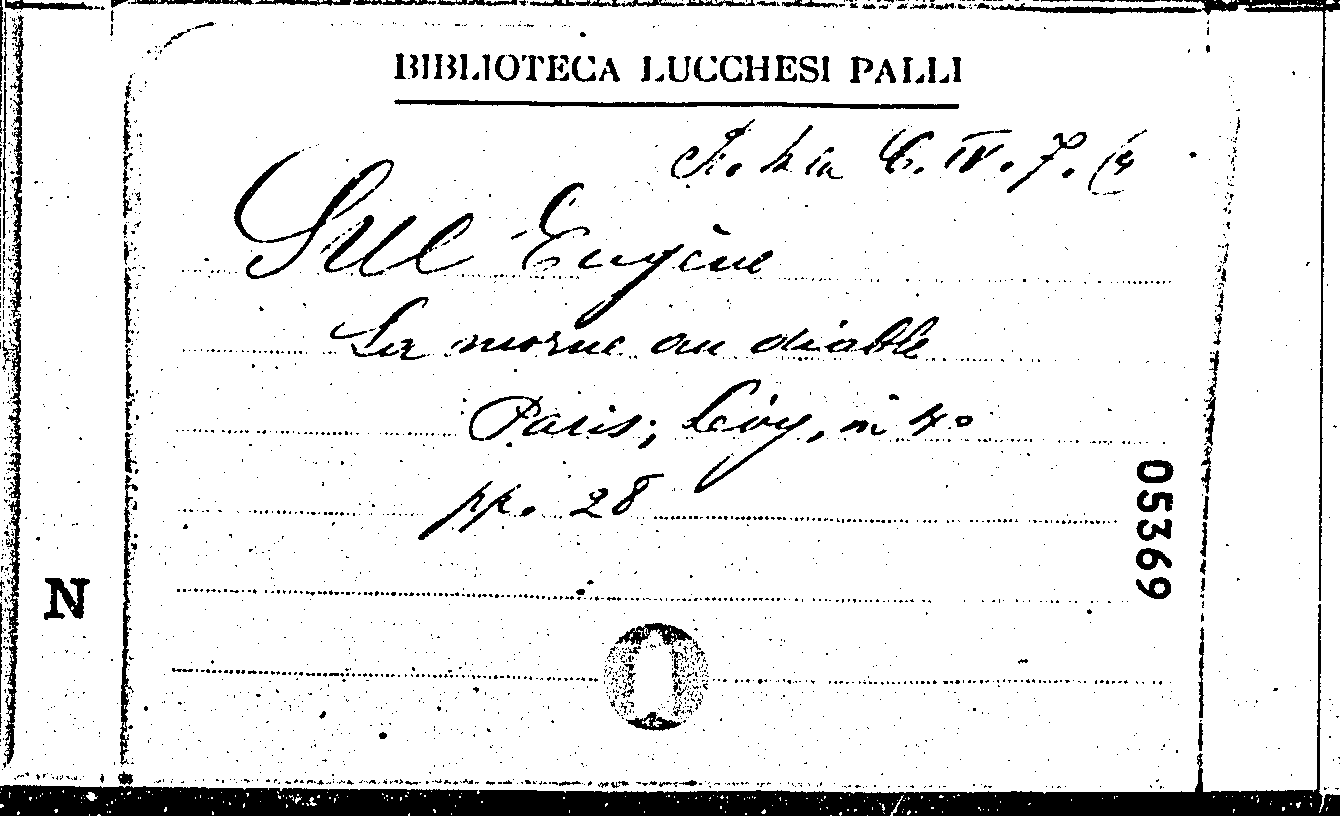 BIBLIOTECA LUCCHESI PALLI
C. IV. 7. (4
Sue Eugène
La morne au diable
Paris, Lévy, in 4°
pp. 28
05369
N